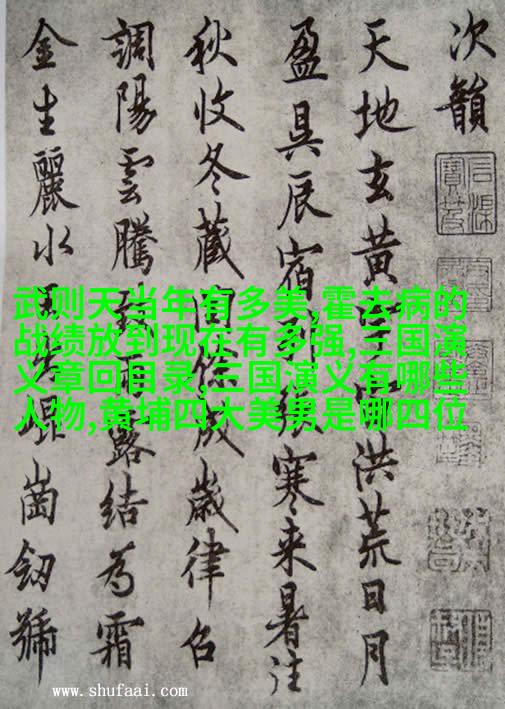 次韻
天地玄黃洪荒日月
盈昃辰宿寒来暑往
秋收冬藏閏餘成歲律召
調陽雲騰致雨露結為霜
金生麗水崗劒號
武则天当年有多美,霍去病的
战绩放到现在有多强,三国演
义章回目录,三国演义有哪些
人物,黄埔四大美男是哪四位
www.shufaai.com